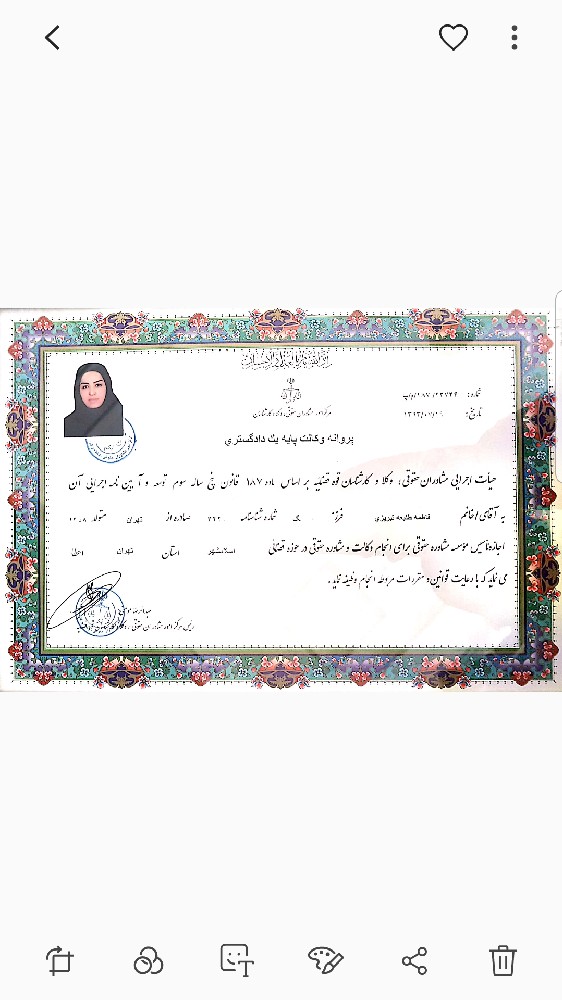 مرکز امور مشاوران حقوقی، وکلا و کارشناسان
شماره:
تاریخ: ۱۳۹۳/۰۷/۱۹
پروانه وکالت پایه یک دادگستری
هیأت اجرایی مشاوران حقوقی، وکلا و کارشناسان قوه قضائیه بر اساس ماده ۱۸۷ قانون پنج ساله سوم توسعه و آیین نامه اجرایی آن
به آقای/خانم فاطمه تبریزی فرزند شماره شناسنامه صادره از تهران متولد
اجازه تأسیس مؤسسه مشاوره حقوقی برای انجام وکالت و مشاوره حقوقی در حوزه قضائی اسلامشهر استان تهران اعطا
می نماید که با رعایت قوانین و مقررات مربوطه انجام وظیفه نماید.
رئیس مرکز امور مشاوران حقوقی،
T